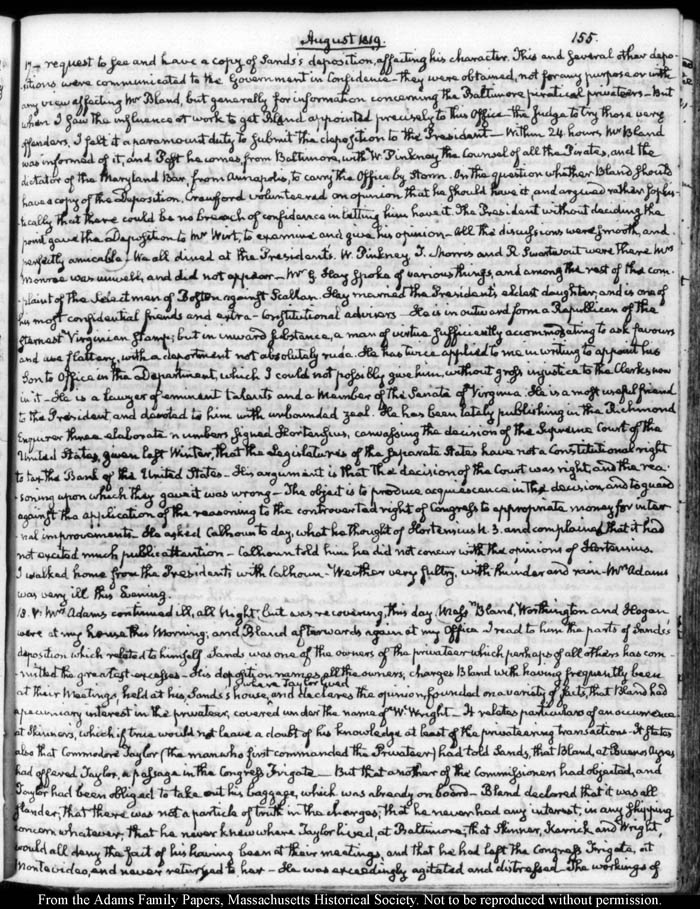 August 1819. 155.
17— request to see and have a copy of Sands's deposition, affecting his character. This and several other depo-
-sitions were communicated to the Government in Confidence—they were obtained, not for any purpose or with
any view affecting Mr Bland, but generally for information concerning the Baltimore piratical privateers—But
when I saw the influence at work to get Bland appointed precisely to this Office—the Judge to try those very
offenders, I felt it a paramount duty to submit this deposition to the President—Within 24 hours Mr Bland
was informed of it, and Post he comes, from Baltimore, with W. Pinkney the Counsel of all the Pirates, and the
dictator of the Maryland Bar, from Annapolis, to carry the Office by Storm. On the question whether Bland should
have a copy of the Deposition, Crawford volunteered an opinion that he should have it, and argued rather sophis-
-tically that there could be no breach of confidence in letting him have it. The President without deciding the
point, gave the Deposition to Mr Wirt, to examine and give his opinion—All the discussions were smooth, and
perfectly amicable. We all dined at the President's. W. Pinkney, T. Morris and R Swartwout were there Mrs
Monroe was unwell, and did not appear—Mr G. Hay spoke of various things, and among the rest of the com-
-plaint of the Selectmen of Boston against Scallan. Hay married the President's eldest daughter, and is one of
his most confidential friends and extra-Constitutional advisers—He is in outward form a Republican of the
sternest Virginian stamp; but in inward substance, a man of virtue sufficiently accommodating to ask favours
and use flattery, with a deportment not absolutely rude. He has twice applied to me in writing to appoint his
Son to Office in the Department, which I could not possibly give him, without gross injustice to the Clerks now
in it—He is a lawyer of eminent talents and a Member of the Senate of Virginia. He is a most useful friend
to the President and devoted to him with unbounded zeal. He has been lately publishing in the Richmond
Enquirer three elaborate numbers signed Hortensius, canvassing the decision of the Supreme Court of the
United States, given last Winter, that the Legislatures of the separate States have not a Constitutional right
to tax the Bank of the United States—His argument is that the decision of the Court was right, and the rea-
-soning upon which they gave it was wrong—The object is to produce acquiescence in the decision, and to guard
against the application of the reasoning to the controverted right of Congress to appropriate money for inter-
nal improvements. He asked Calhoun to day, what he thought of Hortensius N. 3. and complained that it had
not excited much public attention—Calhoun told him he did not concur with the opinions of Hortensius.
I walked home from the President's with Calhoun—Weather very sultry, with thunder and rain—Mrs Adams
was very ill this Evening.
18. V. Mrs Adams continued ill, all Night, but was recovering, this day Messrs Bland, Worthington and Hogan
were at my house this Morning; and Bland afterwards again at my Office. I read to him the parts of Sands's
deposition which related to himself. Sands was one of the owners of the privateer which perhaps of all others has com-
-mitted the greatest excesses—His deposition names all the owners, charges Bland with having frequently been
at their Meetings held at his, Sands's house, where Taylor lived and declares the opinion, founded on a variety of facts, that Bland had
a pecuniary interest in the privateer, covered under the name of W. Wright—It relates particulars of an occurrence
at Skinners, which if true would not leave a doubt of his knowledge at least of the privateering transactions—It states
also that Commodore Taylor (the man who first commanded the Privateer) had told Sands, that Bland, at Buenos Ayres
had offered Taylor, a passage in the Congress Frigate—But that another of the Commissioners had objected, and
Taylor had been obliged to take out his baggage, which was already on board—Bland declared that it was all
slander, that there was not a particle of truth in the charges; that he never had any interest, in any shipping
concern whatever; that he never knew where Taylor lived, at Baltimore; that Skinner, Karrick and Wright,
would all deny the fact of his having been at their meetings, and that he had left the Congress Frigate, at
Montevideo, and never returned to her—He was exceedingly agitated and distressed—The workings of
From the Adams Family Papers, Massachusetts Historical Society. Not to be reproduced without permission.